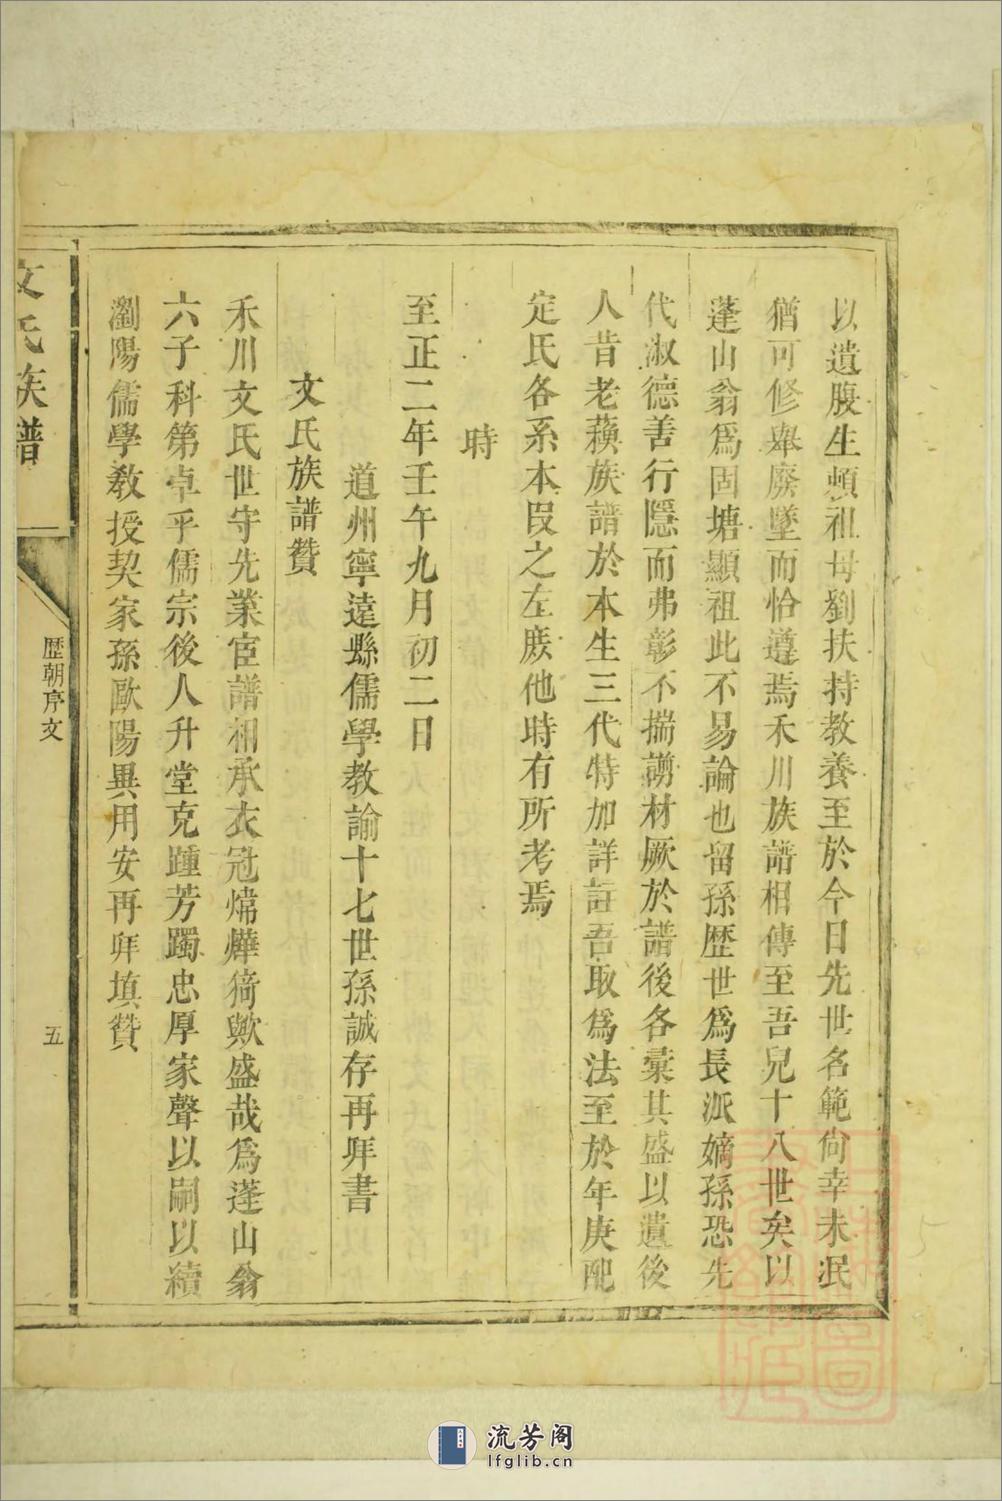 以遺腹生頼祖母劉扶持教養至於今日先世名範尙幸未泯
猶可修舉廢墜而恰遵焉禾川族譜相傳至吾兒十八世矣以
蓬山翁爲固塘顯祖此不易論也留孫歷世爲長派嫡孫恐先
代淑德善行隱而弗彰不揣謭材厥於譜後各彙其盛以遺後
人昔老蘓族譜於本生三代特加詳註吾取爲法至於年庚配
定氏各系本段之左庻他時有所考焉
時
至正二年壬午九月初二日
道州寧遠縣儒學教諭十七世孫誠存再拜書
文氏族譜贊
禾川文氏世守先業宦譜相承衣冠煒燁猗歟盛哉爲蓬山翁
六子科第卓乎儒宗後人升堂克踵芳躅忠厚家聲以嗣以續
瀏陽儒學教授契家孫歐陽異用安再拜填贊
文氏族譜
歷朝序文
五
流芳阁
lfglib.cn